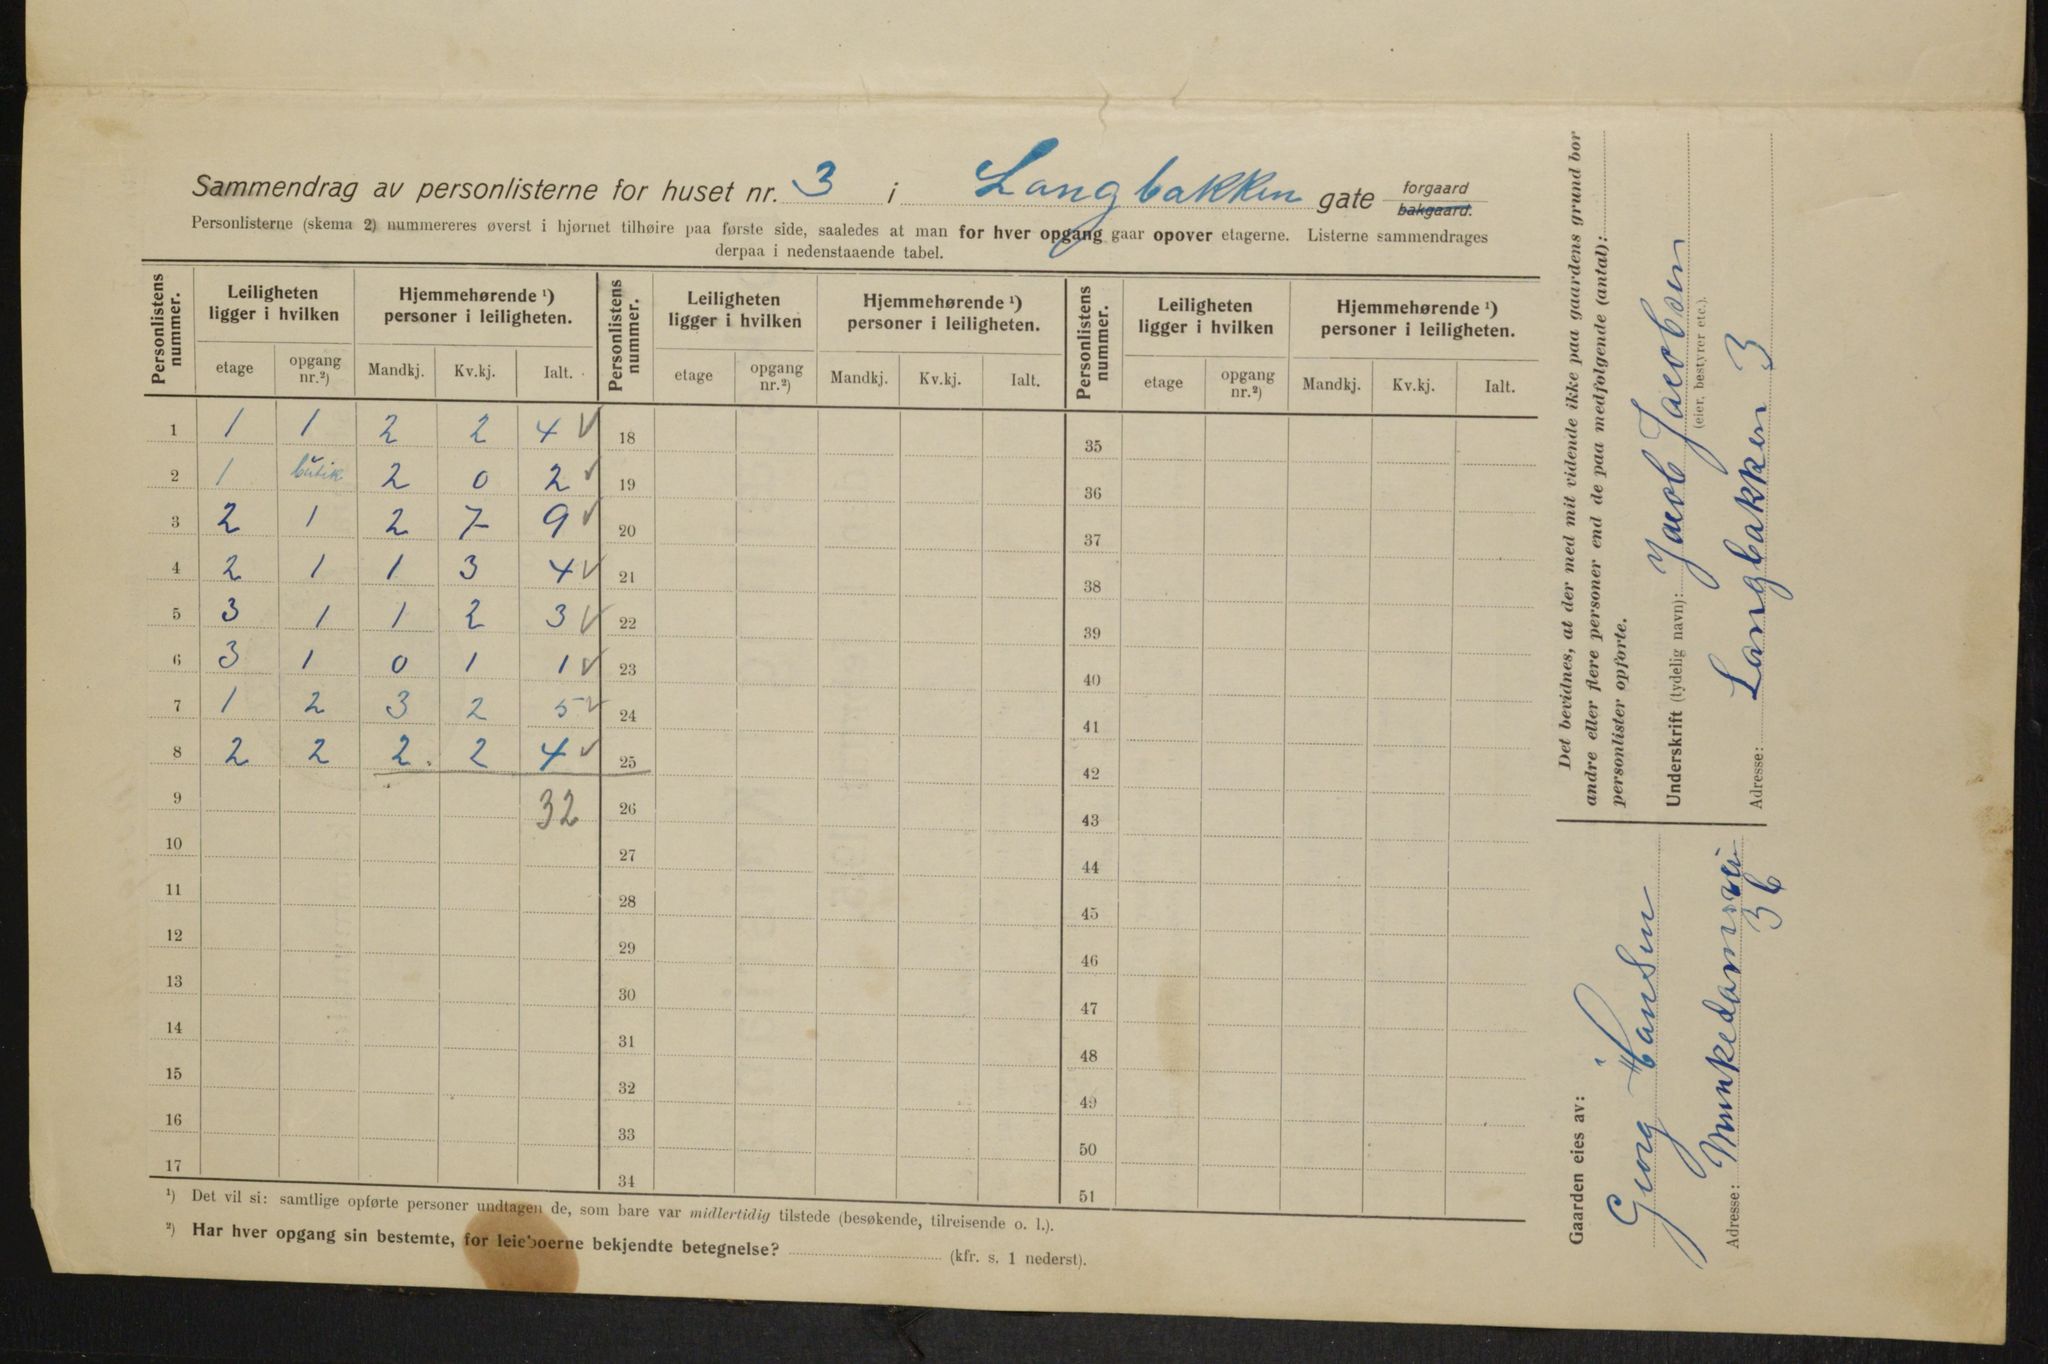 Sammendrag av personlisterne for huset nr. 3 i Langbakken gate forgaard ~~bakgaard.~~
Personlisterne (skema 2) nummereres øverst i hjørnet tilhøire paa første side, saaledes at man for hver opgang gaar opover etagerne. Listerne sammendrages
derpaa i nedenstaaende tabel.
Personlistens nummer. | Leiligheten ligger i hvilken | Hjemmehørende ¹) personer i leiligheten. | Personlistens nummer. | Leiligheten ligger i hvilken | Hjemmehørende ¹) personer i leiligheten. | Personlistens nummer. | Leiligheten ligger i hvilken | Hjemmehørende ¹) personer i leiligheten.
etage | opgang nr.²) | Mandkj. | Kv.kj. | Ialt. | etage | opgang nr.²) | Mandkj. | Kv.kj. | Ialt. | etage | opgang nr.²) | Mandkj. | Kv.kj. | Ialt.
1 | 1 | 1 | 2 | 2 | 4 ✓ | 18 | 35
2 | 1 | butik | 2 | 0 | 2 ✓ | 19 | 36
3 | 2 | 1 | 2 | 7 | 9 ✓ | 20 | 37
4 | 2 | 1 | 1 | 3 | 4 ✓ | 21 | 38
5 | 3 | 1 | 1 | 2 | 3 ✓ | 22 | 39
6 | 3 | 1 | 0 | 1 | 1 ✓ | 23 | 40
7 | 1 | 2 | 3 | 2 | 5 ✓ | 24 | 41
8 | 2 | 2 | 2. | 2 | 4 ✓ | 25 | 42
9 | 32 | 26 | 43
10 | 27 | 44
11 | 28 | 45
12 | 29 | 46
13 | 30 | 47
14 | 31 | 48
15 | 32 | 49
16 | 33 | 50
17 | 34 | 51
¹) Det vil si: samtlige opførte personer undtagen de, som bare var midlertidig tilstede (besøkende, tilreisende o. l.).
²) Har hver opgang sin bestemte, for leieboerne bekjendte betegnelse? (kfr. s. 1 nederst).
Det bevidnes, at der med mit vidende ikke paa gaardens grund bor
andre eller flere personer end de paa medfølgende (antal):
personlister opførte.
Underskrift (tydelig navn): Jacob Jacobsen
(eier, bestyrer etc.).
Adresse: Langbakken 3
Gaarden eies av:
Georg Hansen
Adresse: Munkedamsvei
36